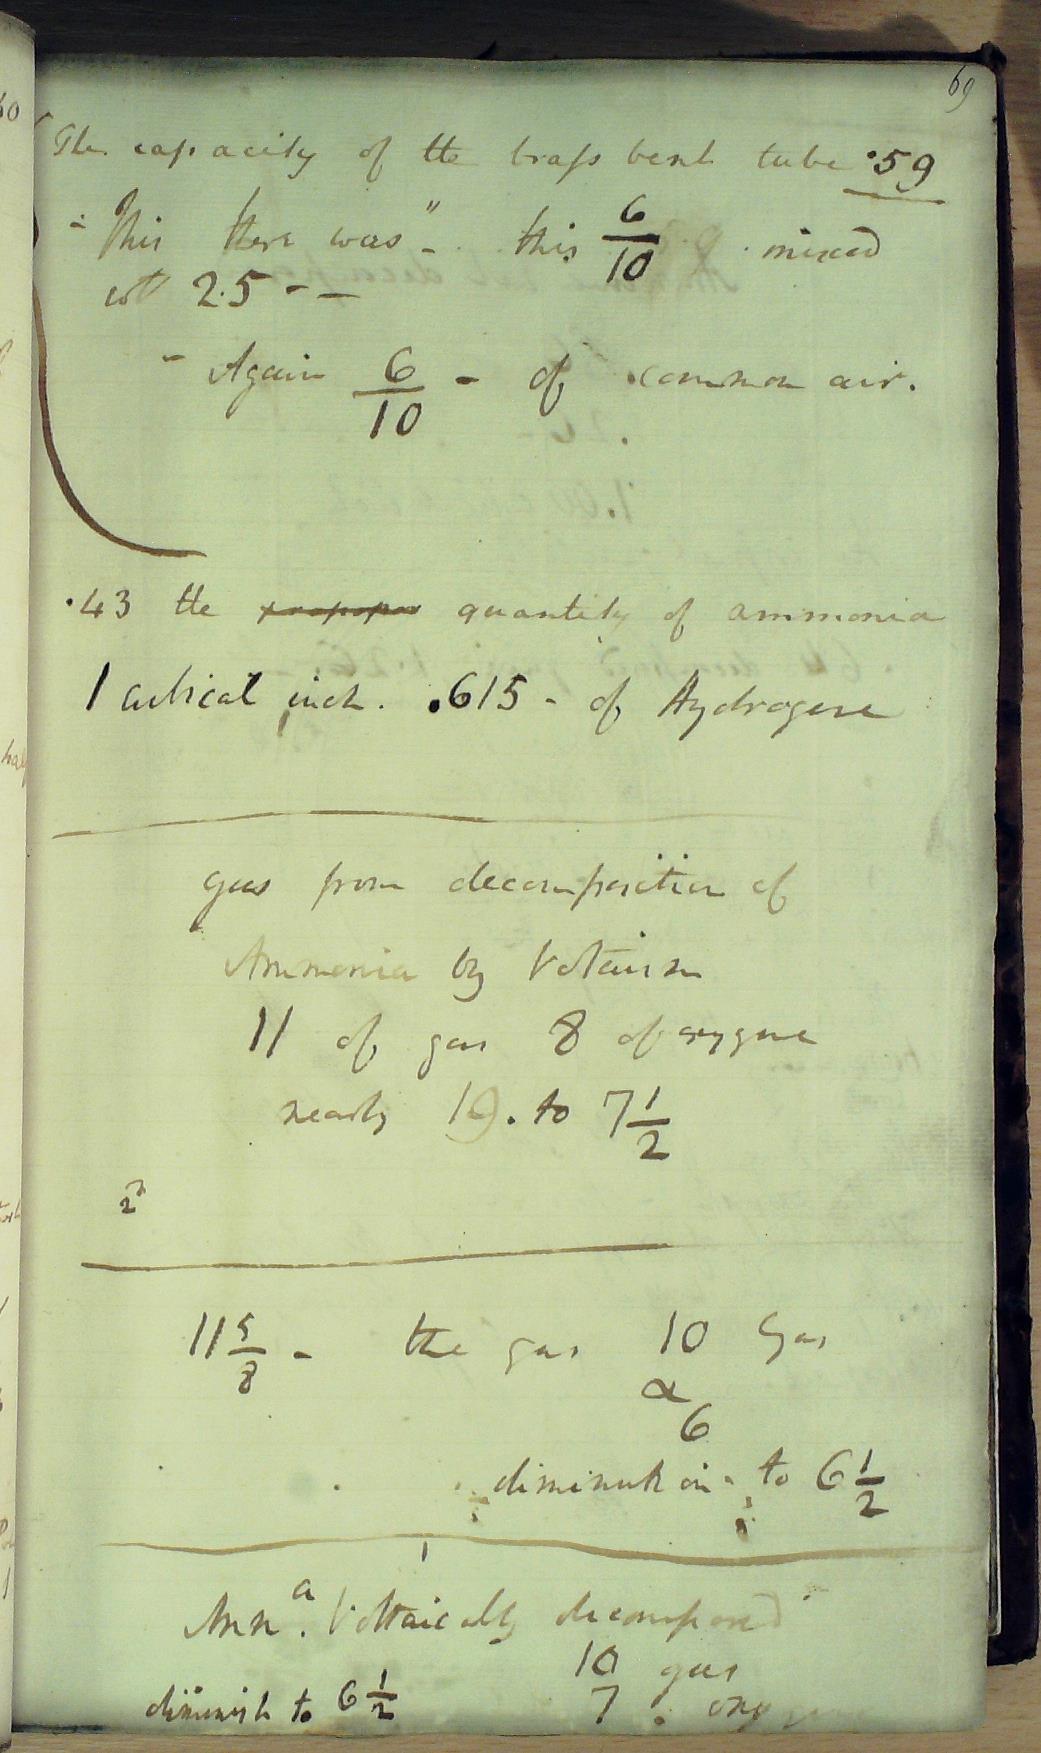 69
The capacity of the brass bent tube .59
- This there was " - this 6/10 mixed
wth 2.5 - -
- Again 6/10 - of common air.
.43 the quantity of ammonia
1 cubical inch. .615 - of Hydrogene
gas from decomposition of
Ammonia by Voltaism
11 of gas 8 of oxygene
nearly 10. to 7 1/2
2
11 5/8 - the gas 10 Gas
6
diminution - to 6 1/2
Amn.a Voltaically decomposed
10 gas
diminish to 6 1/2 7 . oxygene